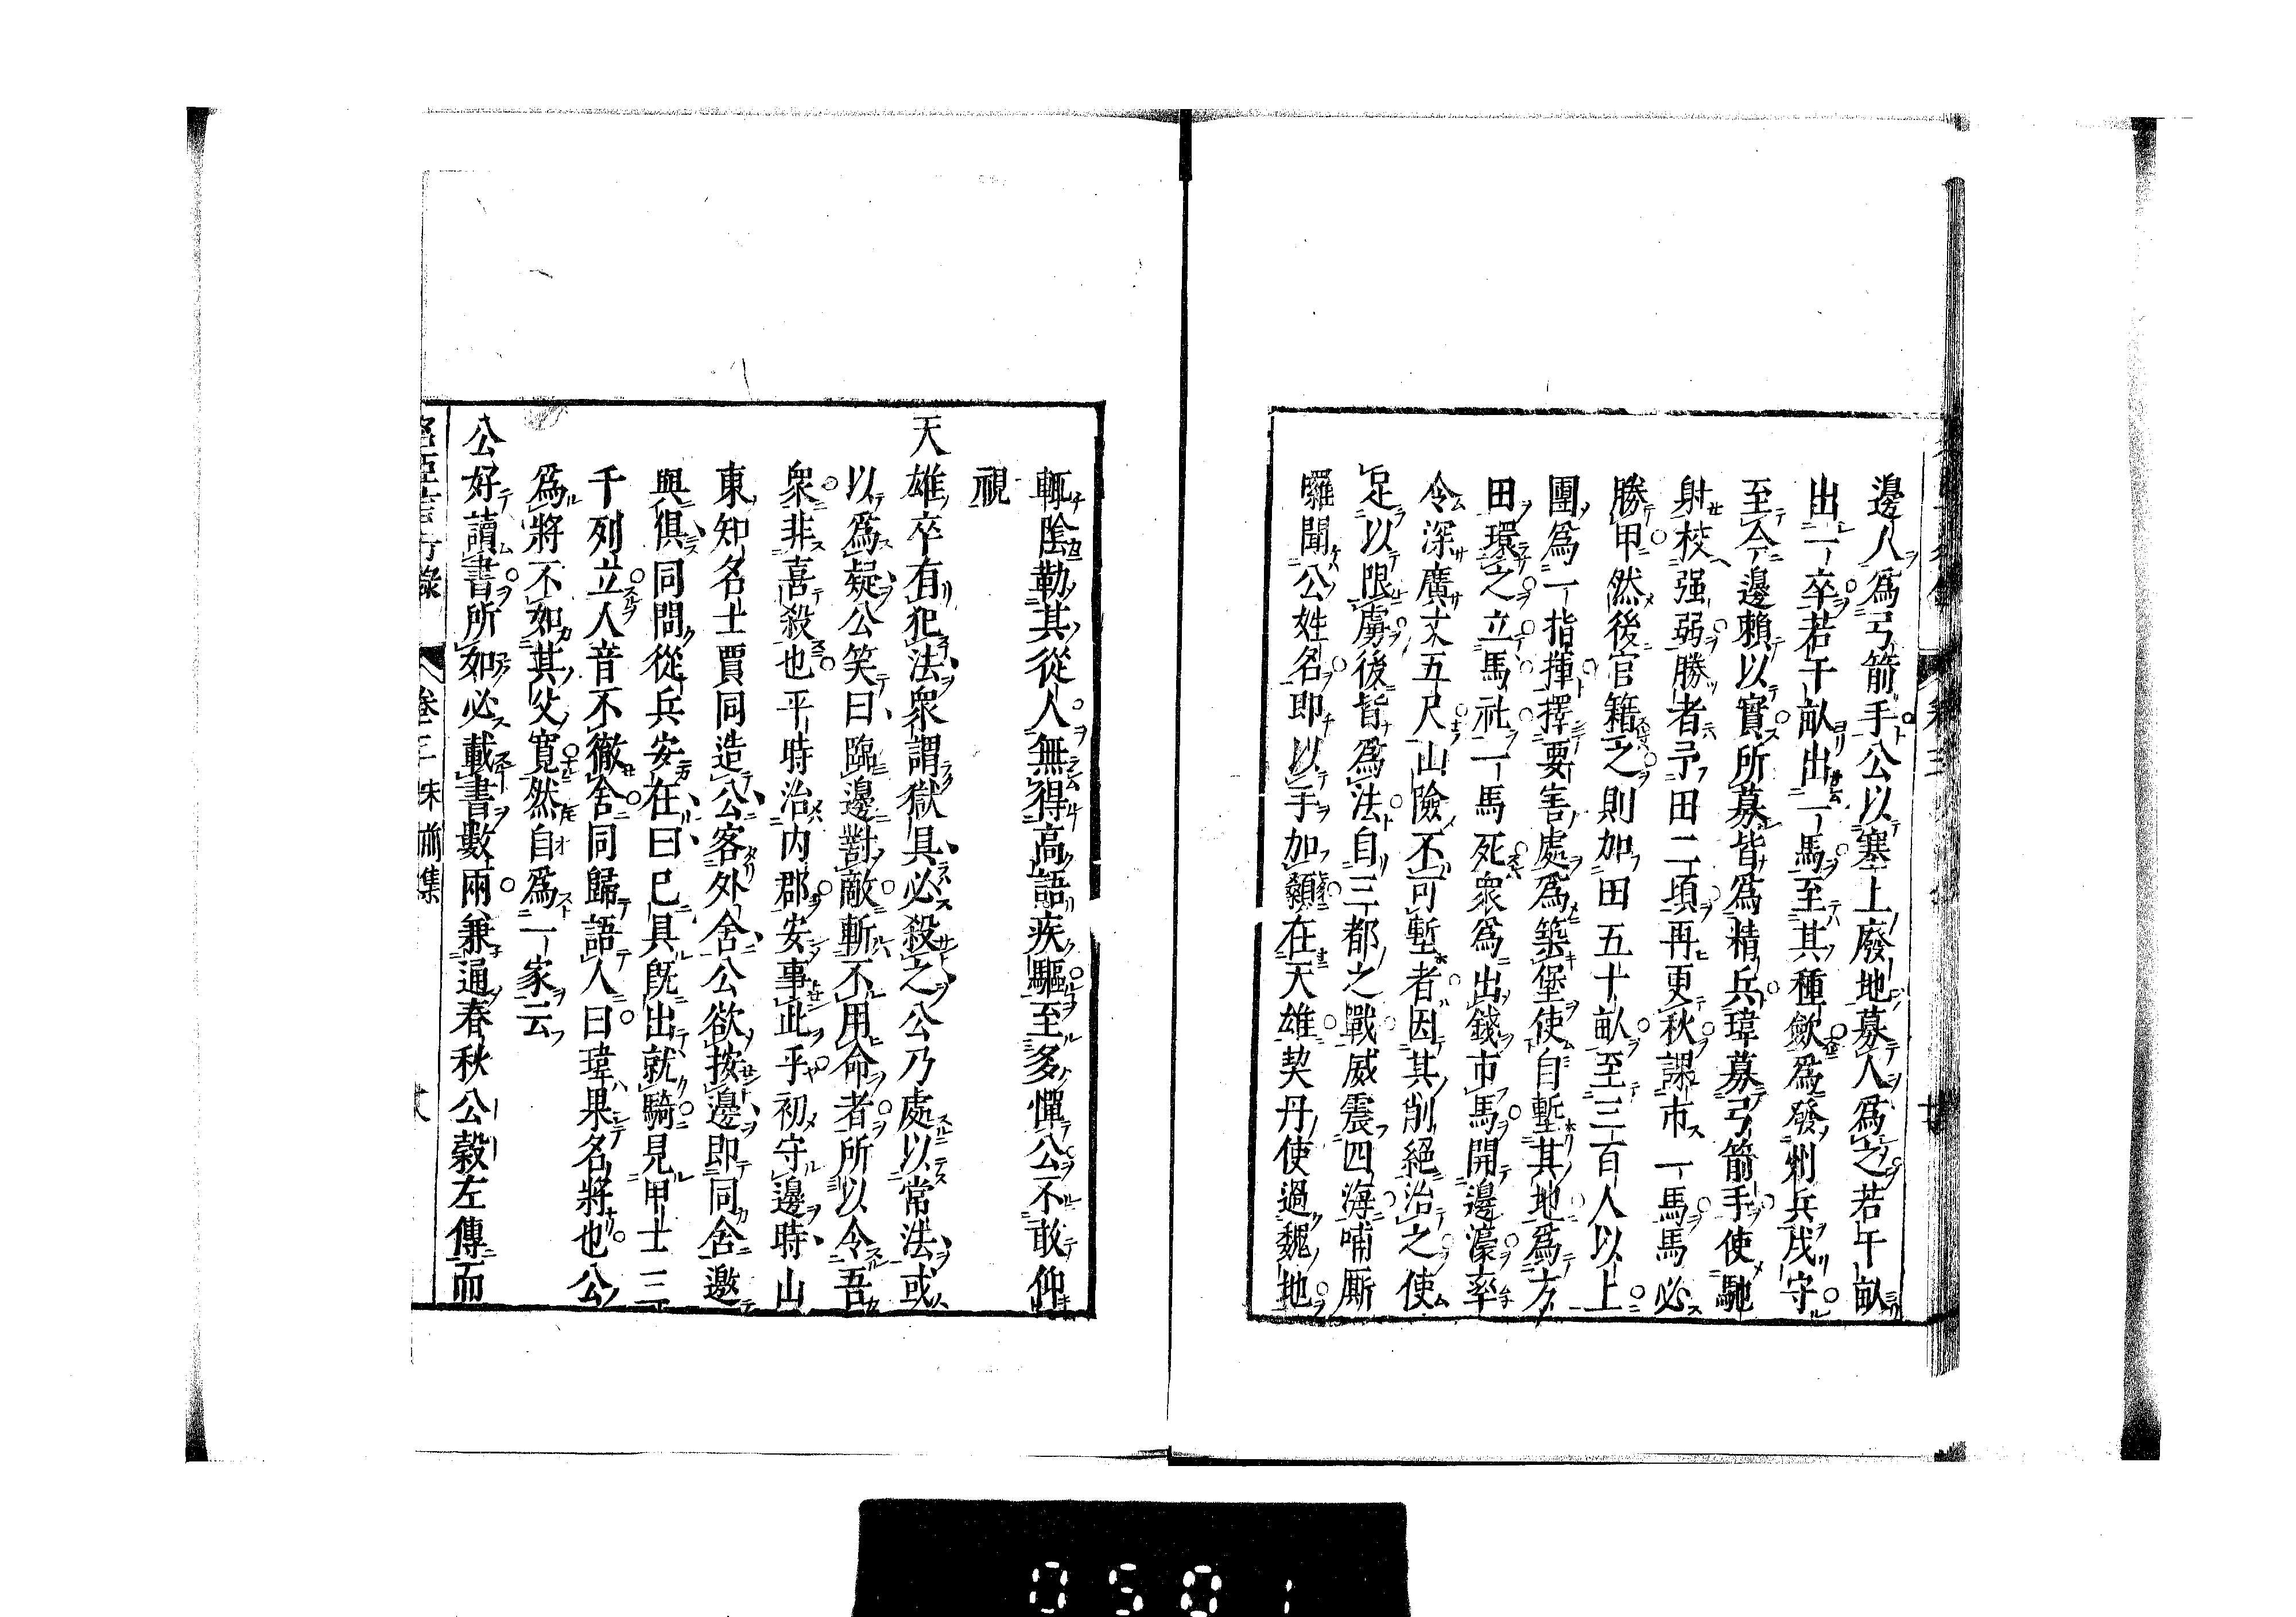 邊人爲弓箭手公以塞上廢地募人爲之若干畝
出一卒若干畝出一馬至其種歛爲發州兵戍守
至今邊賴以實所募皆爲精兵瑋募弓箭手使馳
射校强弱勝者予田二頃再更秋課市一馬馬必
勝甲然後官籍之則加田五十畝至三百人以上
團爲一指揮擇要害處爲築堡使自塹其地爲方
田環之立馬社一馬死衆爲出錢市馬開邊濠率
令深廣丈五尺山險不可塹者因其削絕治之使
足以限虜後皆爲法自三都之戰威震四海唃厮
囉聞公姓名即以手加顙在天雄契丹使過魏地
輒陰勒其從人無得高語疾驅至多憚公不敢仰
視
天雄卒有犯法衆謂獄具必殺之公乃處以常法或
以爲疑公笑曰臨邊對敵斬不用命者所以令吾
衆非喜殺也平時治内郡安事此乎初守邊時山
東知名士賈同造公客外舍公欲按邊即同舍邀
與俱同問從兵安在曰已具旣出就騎見甲士三
千列立人音不徹舍同歸語人曰瑋果名將也公
爲將不如其父寛然自爲一家云
公好讀書所如必載書數兩兼通春秋公穀左傳而
卷三